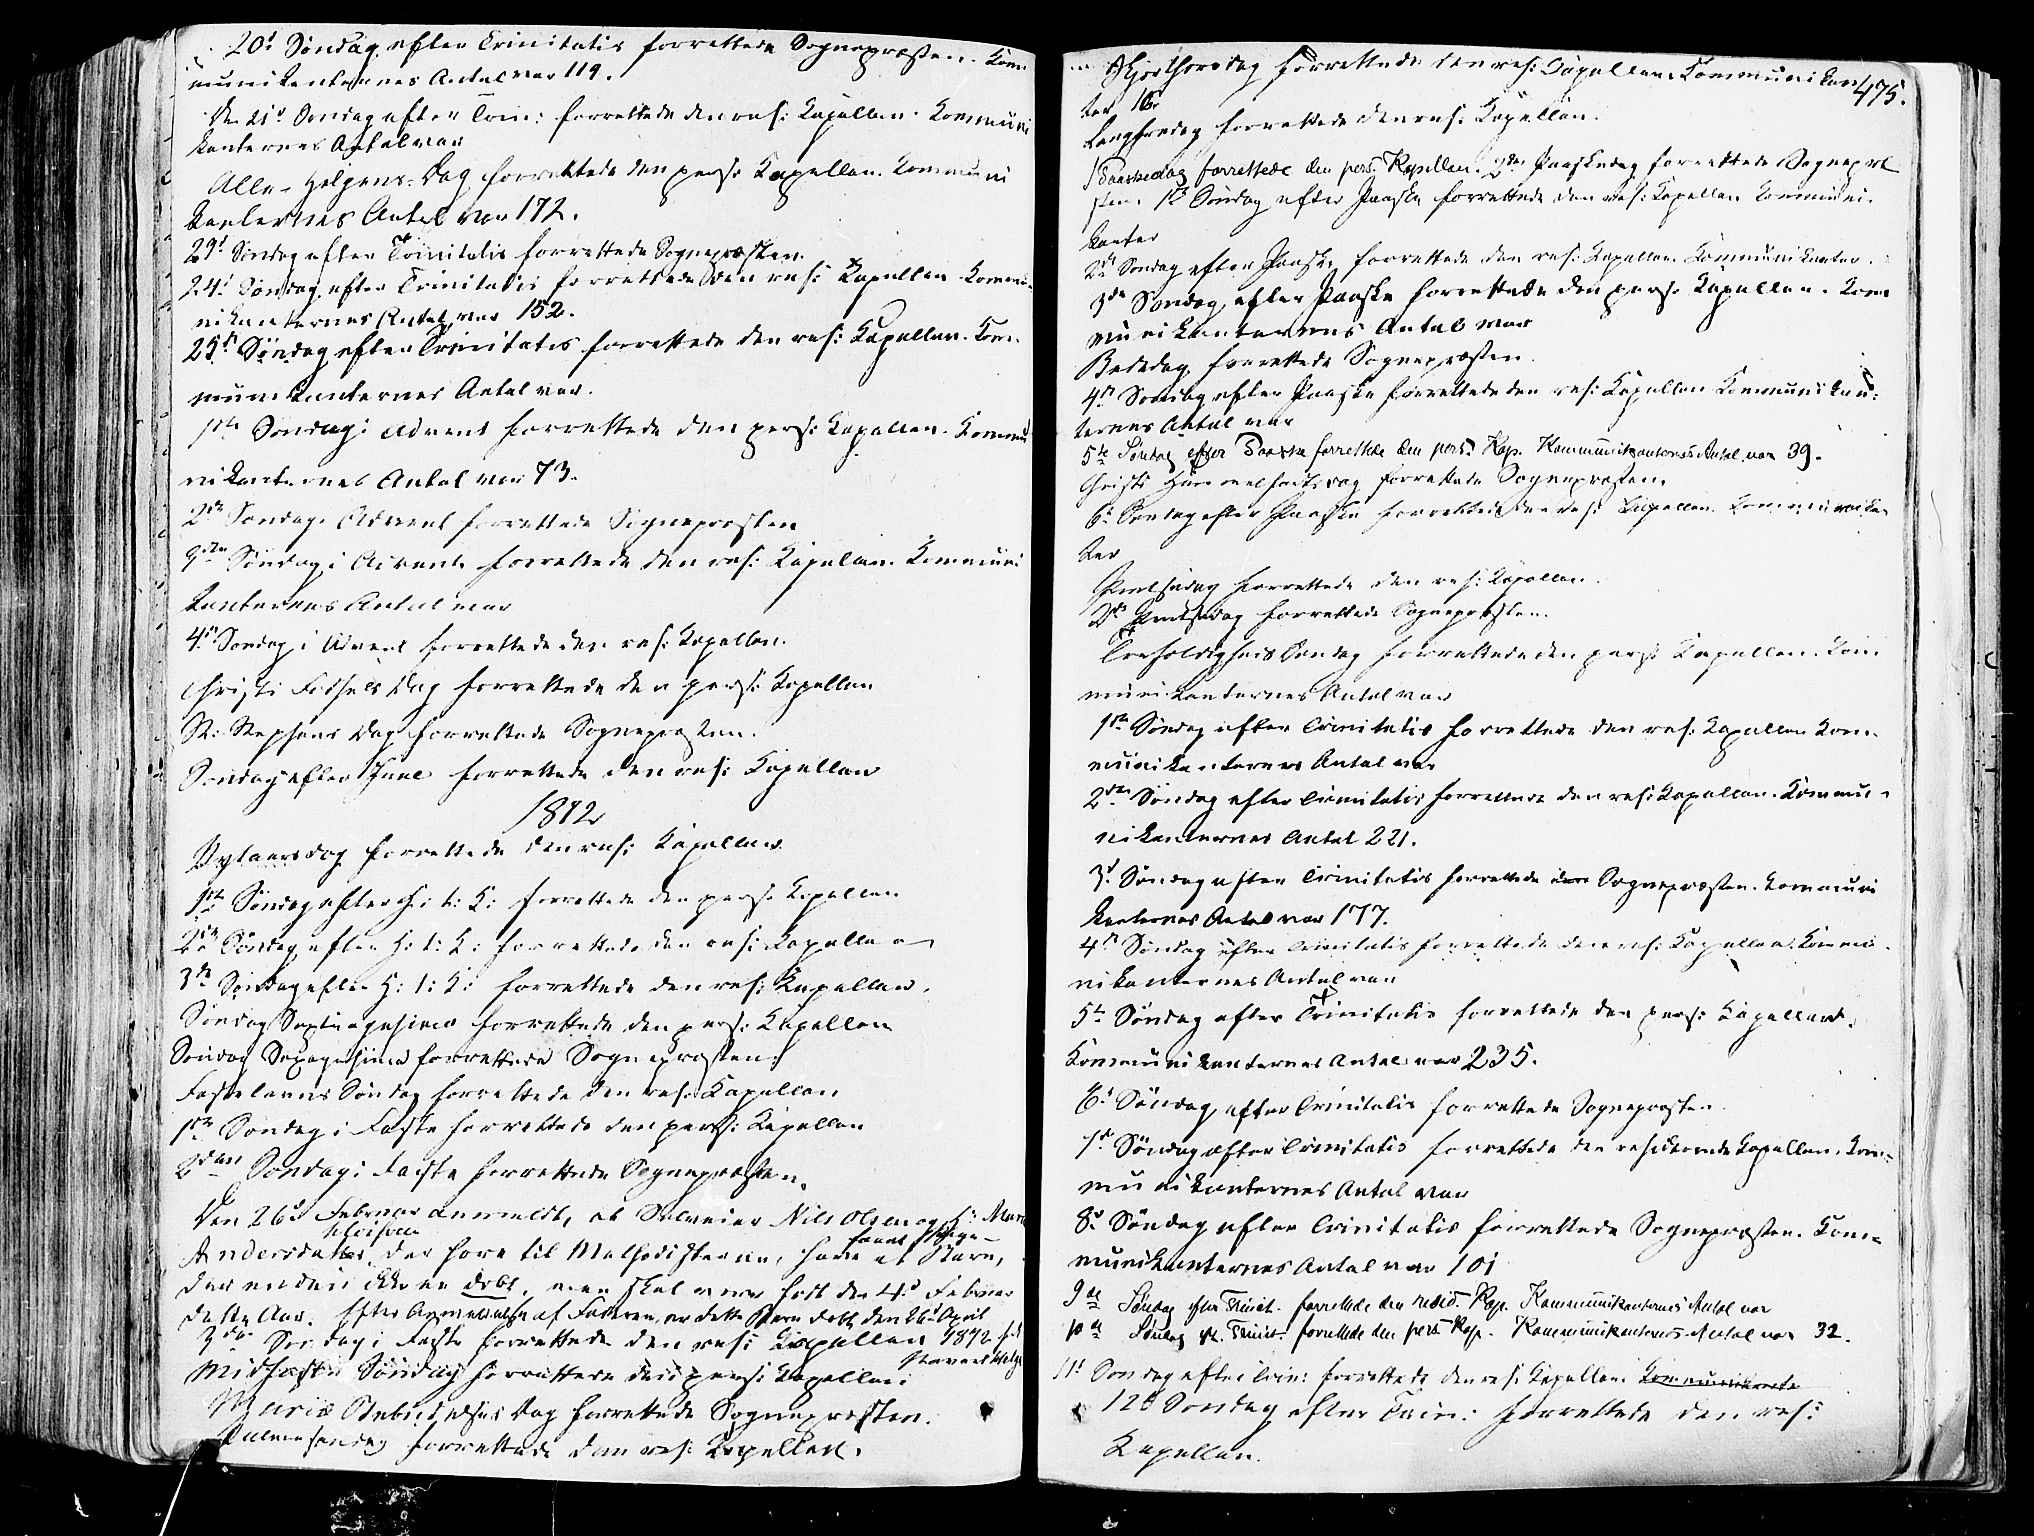 20d Søndag efter Trinitatis forrettede Sognepræsten. Kom-
munikanternes Antal var 119.
Den 21d Søndag efter Trin: forrettede den res: Kapellan. Kommuni
kanternes Antal var
Alle-Helgens-Dag forrettede den pers: Kapellan. Kommuni
kanternes Antal var 172.
23d Søndag efter Trinitatis forrettede Sognepræsten.
24d Søndag efter Trinitatis forrettede den res: Kapellan Kommu-
nikanternes Antal var 152.
25d Søndag efter Trinitatis forrettede den res: Kapellan. Kom-
munikanternes Antal var.
1ste Søndag i Advent forrettede den pers: Kapellan. Kommu
nikanternes Antal var 73.
2den Søndag i Advent forrettede Sognepræsten
3die Søndag i Advent forrettede den res: Kapellan. Kommuni
kanternes Antal var
4de Søndag i Advent forrettede den res: Kapellan.
Christi Fødsels Dag forrettede den pers: Kapellan
St. Stephans Dag forrettede Sognepræsten.
Søndag efter Juul forrettede den res: Kapellan
1872
Nytaarsdag forrettede den res: Kapellan
1ste Søndag efter H: 3: K: forrettede den pers: Kapellan
2den Søndag efter H: 3: K: forrettede den res: Kapellan
3de Søndag efter H: 3: K: forrettede den res: Kapellan.
Søndag Septuagesima forrettede den pers: Kapellan
Søndag Sexagesima forrettede Sognepræsten.
Fastelavns Søndag forrettede den res: Kapellan
1ste Søndag i Faste forrettede den pers: Kapellan
2den Søndag i Faste forrettede Sognepræsten.
Den 26d Februar anmeldt, at Nils Olsen og H: Mari
Andersdatter, der høre til Methodisterne, have et Barn,
der endnu ikke er døbt, men skal være født den 4d Februar
dette Aar. Efter Anmeldelse af Faderen, er dette Barn døbt den 26d April
3die Søndag i Faste forrettede den res: Kapellan 1872
Midfaste Søndag forrettede den pers: Kapellan.
Mariæ Bebudelses Dag forrettede Sognepræsten.
Palmesøndag forrettede den res: Kapellan.
475.
Skjærthorsdag forrettede den res: Capellan Kommunikan-
ter 16.
Langfredag forrettede den res: Kapellan.
1 Paaskedag forrettede den pers. Kapellan. 2den Paaskedag forrettede Sognepræ
sten. 1ste Søndag efter Paaske forrettede den res: Kapellan Kommuni-
kanter
2den Søndag efter Paaske forrettede den res: Kapellan. Kommunikanter.
3die Søndag efter Paaske forrettede den pers: Kapellan. Kom
munikanternes Antal var
Bededag forrettede Sognepræsten.
4de Søndag efter Paaske forrettede den res: Kapellan Kommunikan-
ternes Antal var
5te Søndag efter Paaske forrettede den pers. Kap. Kommunikanternes Antal var 39.
Christi Himmelfartsdag forrettede Sognepræsten.
6te Søndag efter Paaske forrettede den res: Kapellan. Kommunikan
ter
Pintsedag forrettede den res: Kapellan.
2den Pintsedag forrettede Sognepræsten.
Trefoldigheds Søndag forrettede den pers: Kapellan. Kom
munikanternes Antal var
1ste Søndag efter Trinitatis forrettede den res: Kapellan Kom-
munikanternes Antal var
2den Søndag efter Trinitatis forrettede den res: Kapellan. Kommu-
nikanternes Antal 221.
3d Søndag efter Trinitatis forrettede den Sognepræsten. Kommuni
kanternes Antal var 177.
4de Søndag efter Trinitatis forrettede den res: Kapellan. Kommu-
nikanternes Antal var
5te Søndag efter Trinitatis forrettede den pers: Kapellan.
Kommunikanternes Antal var 235.
6d Søndag efter Trinitatis forrettede Sognepræsten.
7d Søndag efter Trinitatis forrettede den residerende Kapellan. Kom-
munikanternes Antal var
8d Søndag efter Trinitatis forrettede Sognepræsten. Kom-
munikanternes Antal var 101
9de Søndag efter Trinit. forrettede den resid. Kap. Kommunikanternes Antal var
10de Søndag ef. Trinit. forrettede den pers Kap. Kommunikanternes Antal var 32.
11d Søndag efter Trin: forrettede den res: Kapellan. Kommunikante
12d Søndag efter Trin: forrettede den res:
Kapellan.